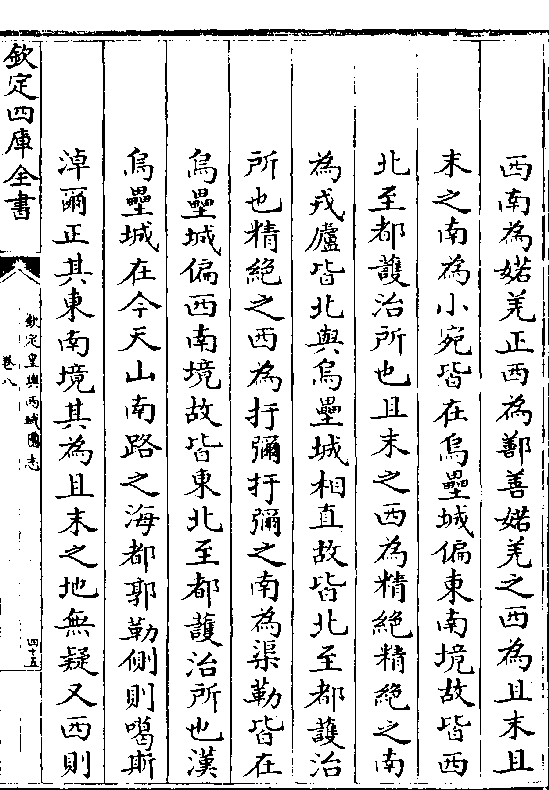 西南為婼羌正西為鄯善婼羌之西為且末且
末之南為小宛皆在烏壘城偏東南境故皆西
北至都護治所也且末之西為精絶精絶之南
為戎廬皆北與烏壘城相直故皆北至都護治
所也精絶之西為扜彌扜彌之南為渠勒皆在
烏壘城偏西南境故皆東北至都護治所也漢
烏壘城在今天山南路之海都郭勒側則噶斯
淖爾正其東南境其為且末之地無疑又西則
欽定四庫全書
欽定皇輿西域圖志
卷八
四十五